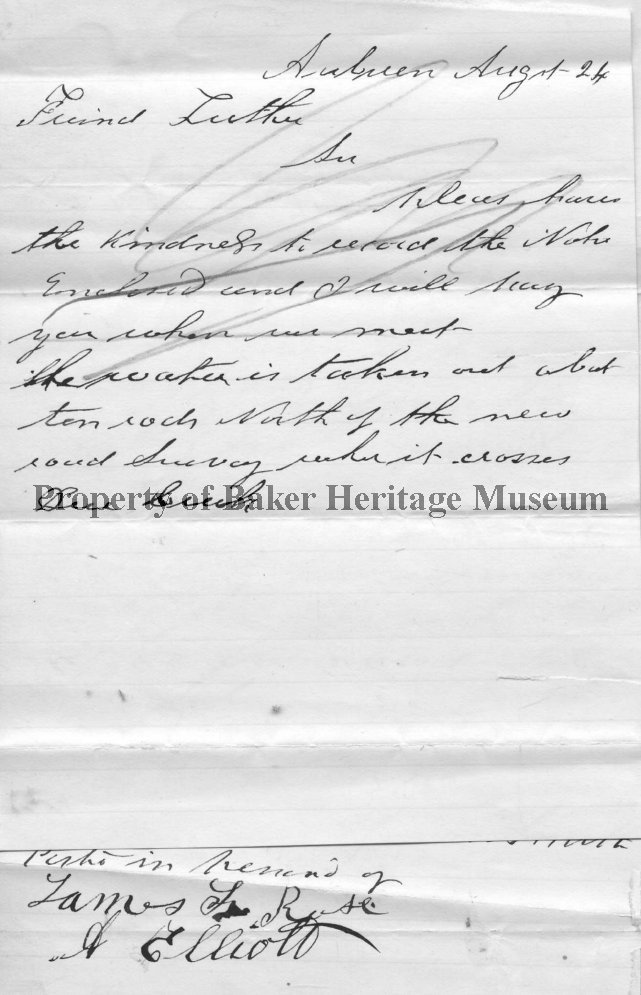 Auburn Augst 24
Friend Luther
Sir
Pleas have
the Kindness to record the Note
Enclosed and I will pay
you when we meet
the water is taken out about
ten rods North of the new
road Survey wher it crosses
Creek
Property of Baker Heritage Museum
in presence of
James F. Rose
A Elliott